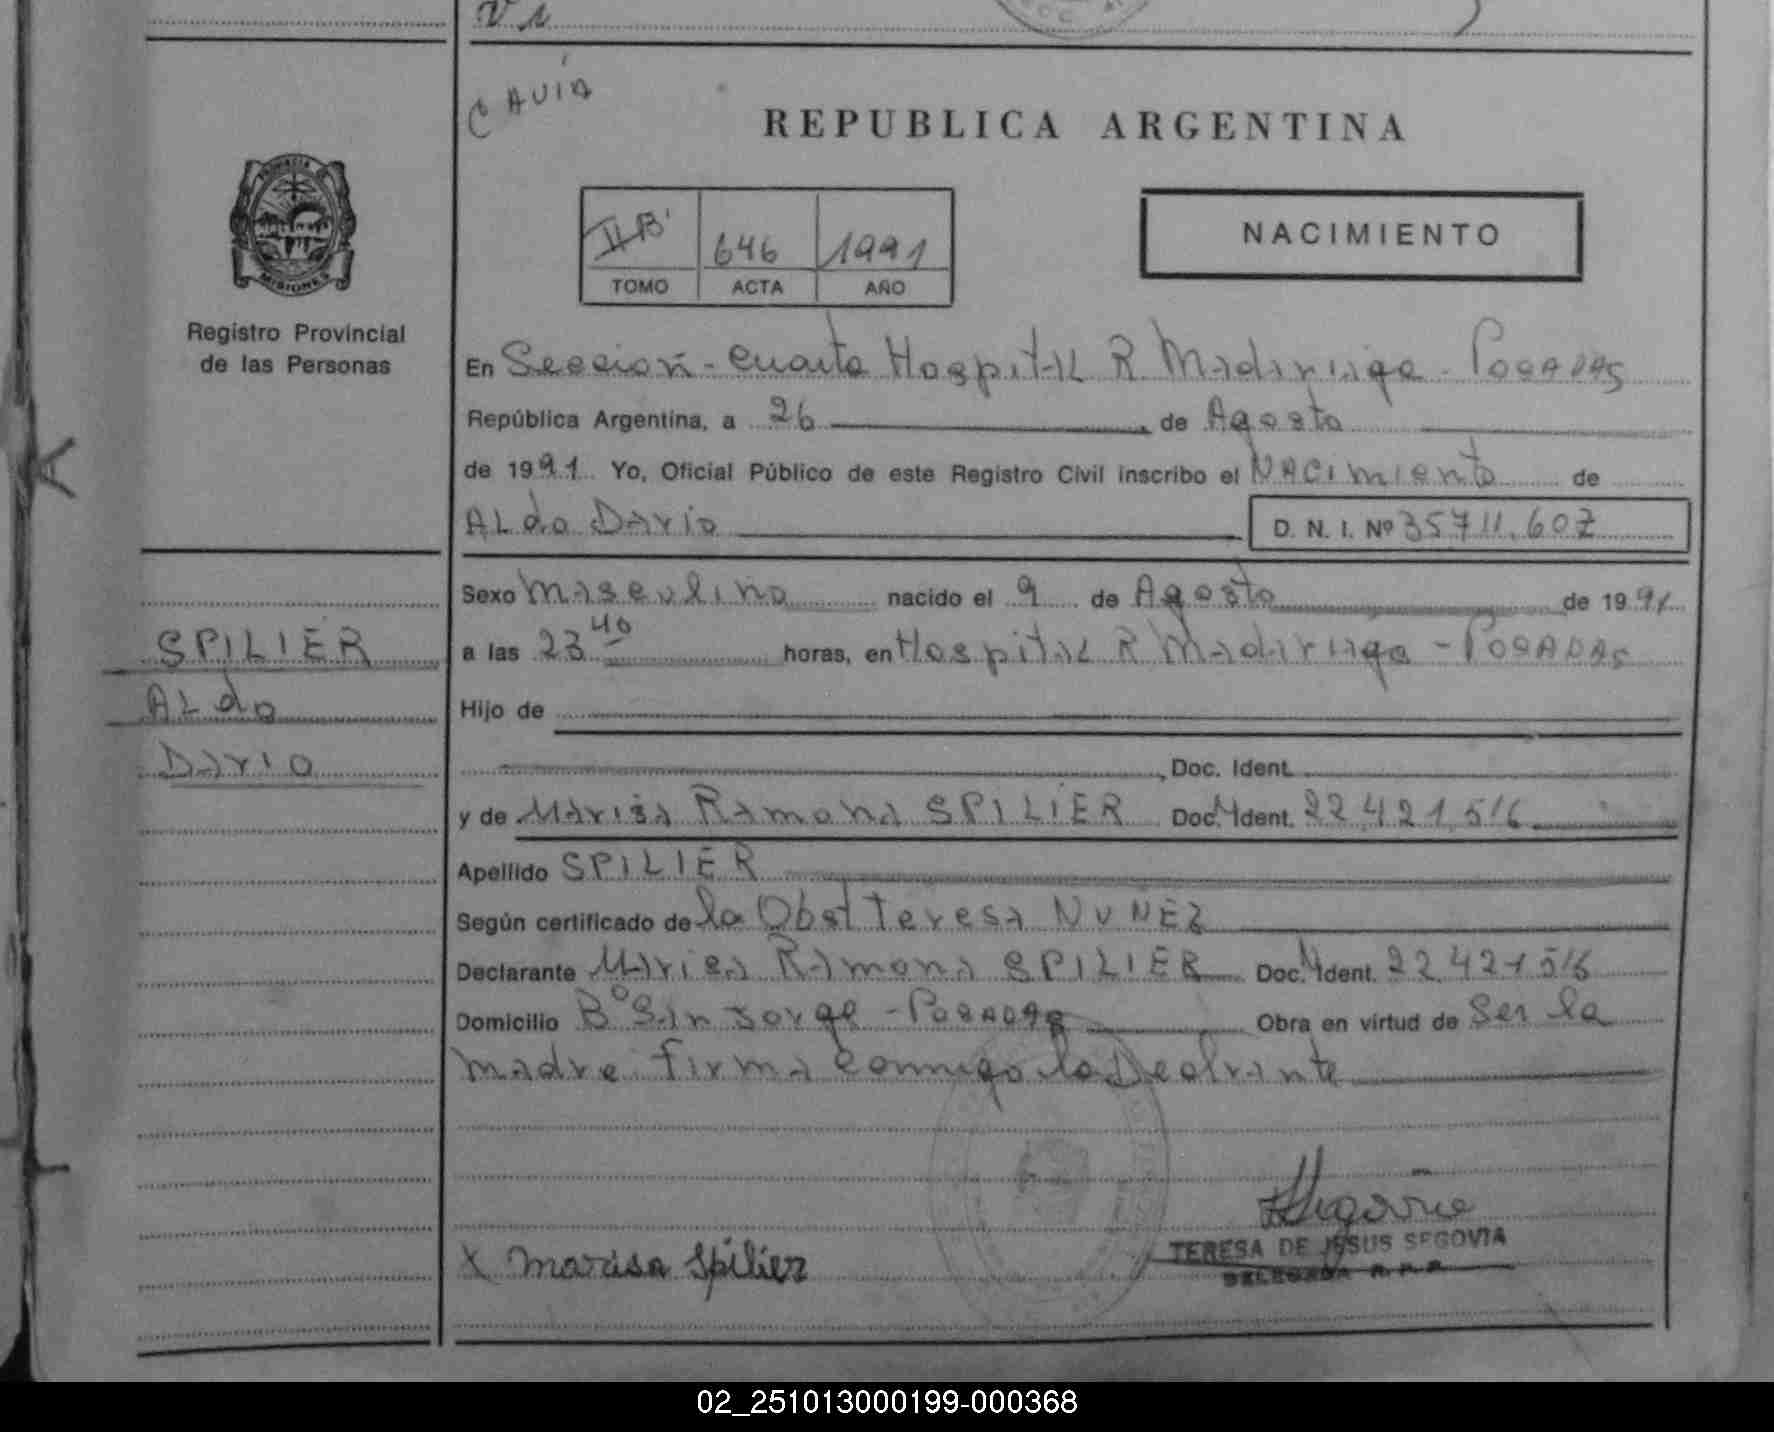 CAVIA
REPUBLICA ARGENTINA
PROVINCIA
MISIONES
II B' 646 1991
TOMO ACTA AÑO
NACIMIENTO
Registro Provincial
de las Personas
En Sección - Cuarta Hospital R Madariaga - POSADAS
República Argentina, a 26 de Agosto
de 1991 Yo, Oficial Público de este Registro Civil inscribo el NACimiento de
ALdo Dario D. N. I. Nº 35711.607
Sexo masculino nacido el 9 de Agosto de 1991
a las 23 40 horas, en Hospital R Madariaga - POSADAS
Hijo de
, Doc. Ident.
y de Marisa Ramona SPILIER Doc. Ident. 22.421.516
Apellido SPILIER
Según certificado de la Obst Teresa NUNEZ
Declarante Marisa Ramona SPILIER Doc. Ident. 22.421516
Domicilio Bº San Jorge - POSADAS Obra en virtud de Ser la
madre firma conmigo la Declrante
SPILIER
ALdo
Dario
Segovia
TERESA DE JESUS SEGOVIA
DELEGADA R.P.P.
X Marisa Spilier
02_251013000199-000368